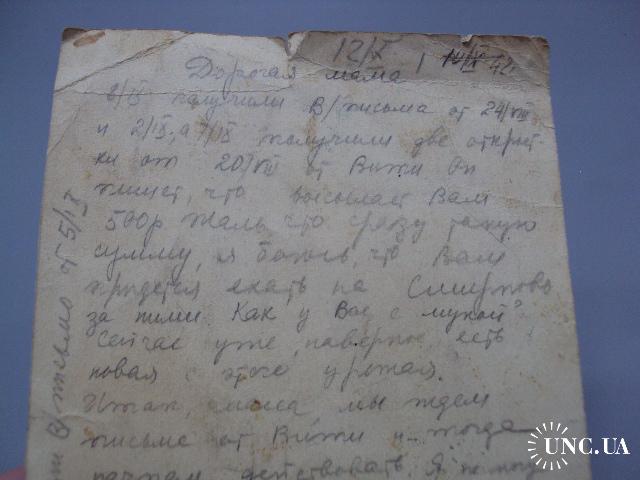 12/X 14/X 42.
Дорогая мама!
8/IX получили В/письма от 24/VIII
и 2/IX, а 7/IX получили две открыт-
ки от 20/VIII от Вити Он
пишет, что высылает Вам
500р Жаль что сразу такую
сумму, я боюсь, что Вам
придется ехать на Смирново
за ними. Как у Вас с мукой?
Сейчас уже, наверное, есть
новая с этого урожая.
Итак, мама, мы ждем
письма от Вити и тогда
начнем действовать. Я не могу
В/письмо от 5/IX
UNC.UA